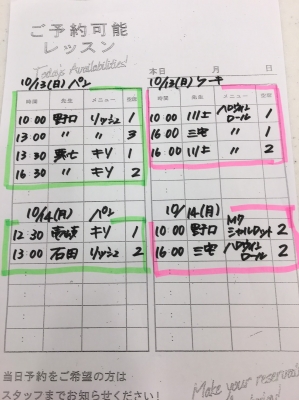 ご予約可能
レッスン
Today's Availabilities!
本日 月 日
10/13(日) パン
時間 先生 メニュー 空席
10:00 野口 リッシュ 1
13:00 〃 〃 3
13:30 キソ 1
16:30 〃 キソ 2
10/13(日) ケーキ
時間 先生 メニュー 空席
10:00 川上 ハロウィンロール 1
16:00 三宅 〃 1
16:00 川上 〃 2
10/14(月) パン
12:30 キソ 1
13:00 石田 リッシュ 2
10/14(月)
10:00 野口 シャルロット 2
16:00 三宅 ハロウィンロール 2
当日予約をご希望の方は
スタッフまでお知らせください!
Make your reserved!